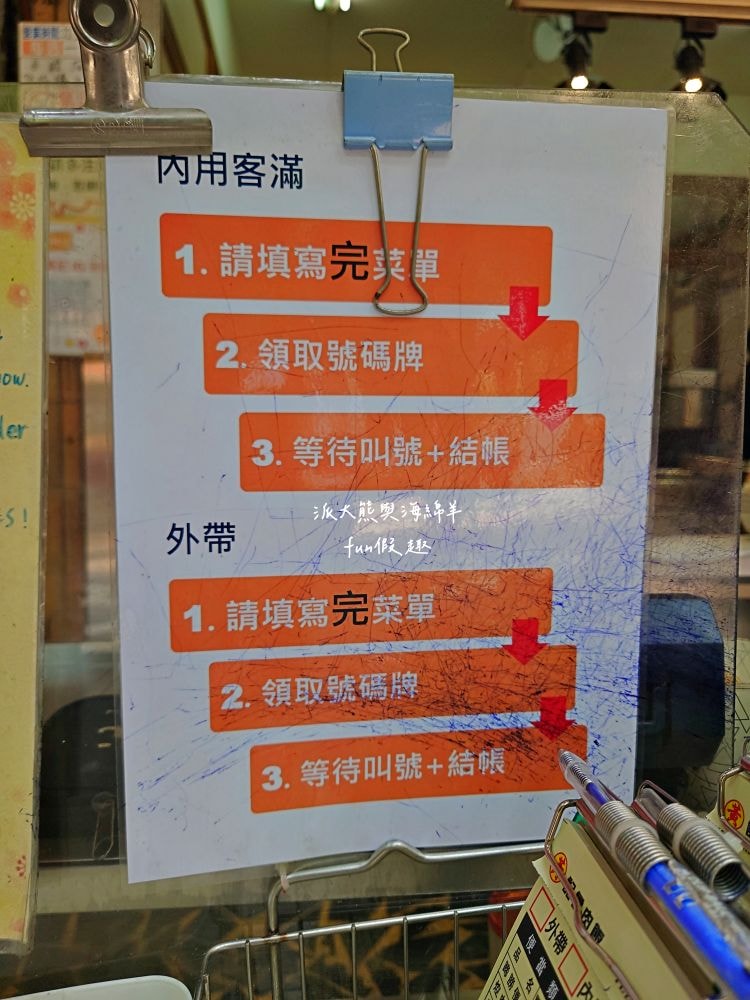 內用客滿
1. 請填寫完菜單
2. 領取號碼牌
3. 等待叫號+結帳
派大熊與海綿羊
fun假趣
外帶
1. 請填寫完菜單
2. 領取號碼牌
3. 等待叫號+結帳
外帶